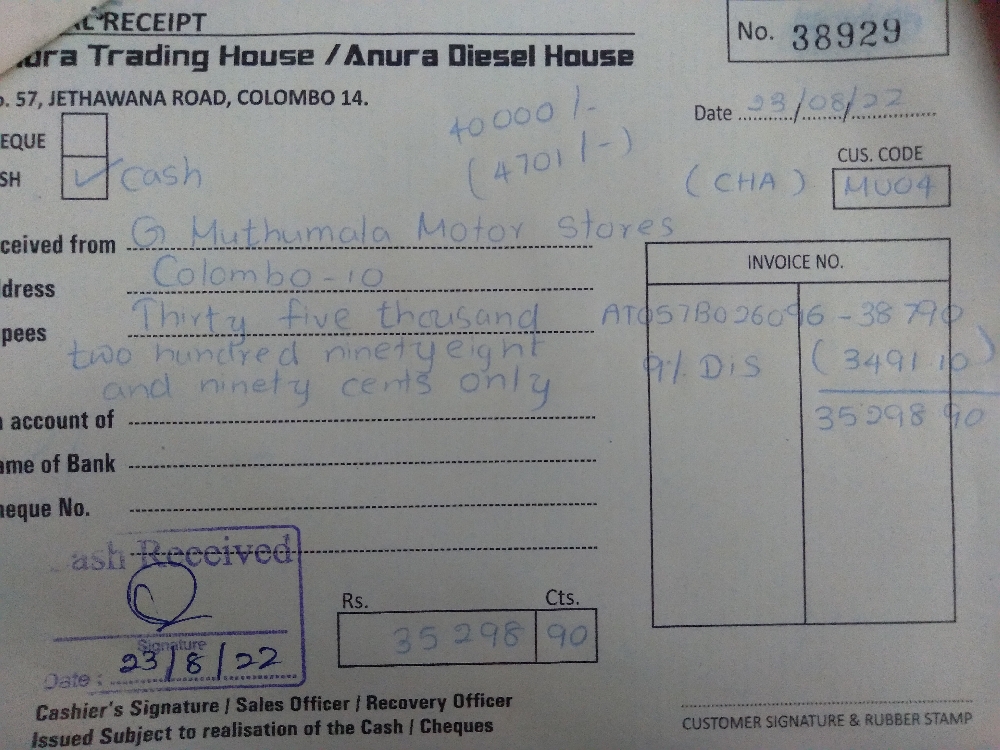 AL RECEIPT
No. 38929
ura Trading House / Anura Diesel House
o. 57, JETHAWANA ROAD, COLOMBO 14.
Date 23/08/22
40000/-
(4701/-)
EQUE
SH ✓ cash
(CHA)
CUS. CODE
MU04
ceived from G Muthumala Motor Stores
dress Colombo-10
pees Thirty five thousand
two hundred ninety eight
and ninety cents only
INVOICE NO.
AT057B026096 - 38 790
9% Dis (3491 10)
35 298 90
account of
ame of Bank
heque No.
ash Received
Signature
Date : 23/8/22
Rs. Cts.
35 298 90
Cashier's Signature / Sales Officer / Recovery Officer
Issued Subject to realisation of the Cash / Cheques
CUSTOMER SIGNATURE & RUBBER STAMP